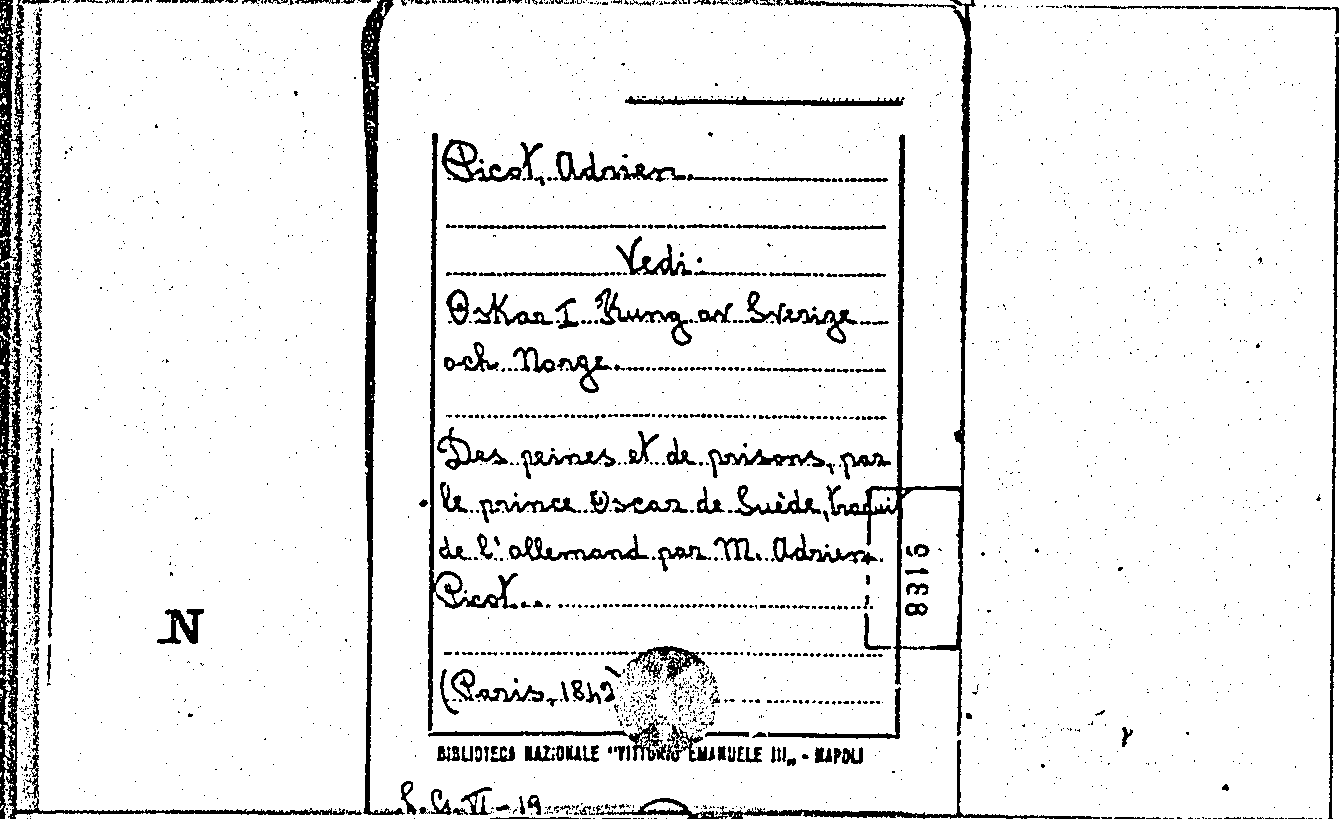 Picot, Adrien.
Vedi:
Oskar I Kung av Sverige
och Norge.
Des peines et de prisons, par
le prince Oscar de Suède, traduit
de l'allemand par M. Adrien
Picot...
(Paris, 1842)
8316
N
BIBLIOTECA NAZIONALE "VITTORIO EMANUELE III„ - NAPOLI
VI-19